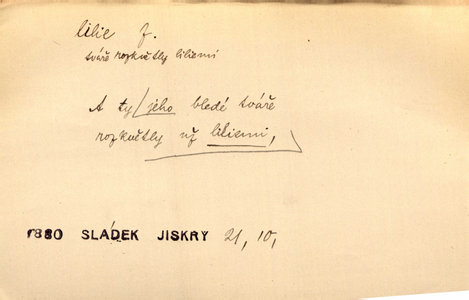 lilie f.
tváře rozkvětly liliemi
A ty jeho bledé tváře
rozkvětly už liliemi,
1880 SLÁDEK JISKRY 21, 10,